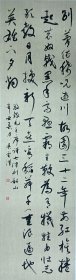 别梦依稀咒逝川故园三十二年前红旗卷
起农奴戟黑手高悬霸主鞭为有牺牲多壮志
敢教日月换新天喜看稻菽千重浪遍地
英雄下夕烟